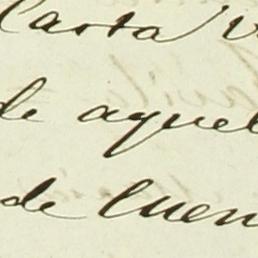 Carta
de aquel
de Cuen